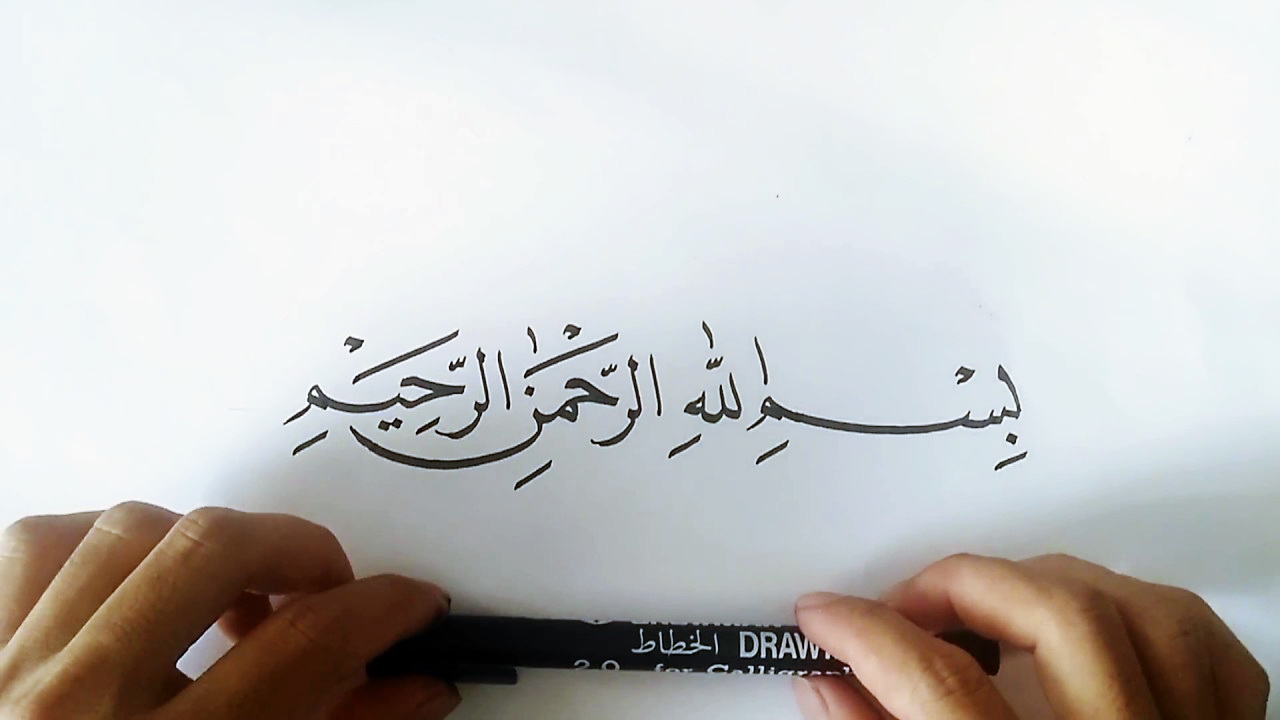 بِسْمِ اللّٰهِ الرَّحْمٰنِ الرَّحِيْمِ
الخطاط DRAW
2.0 for Calligraph